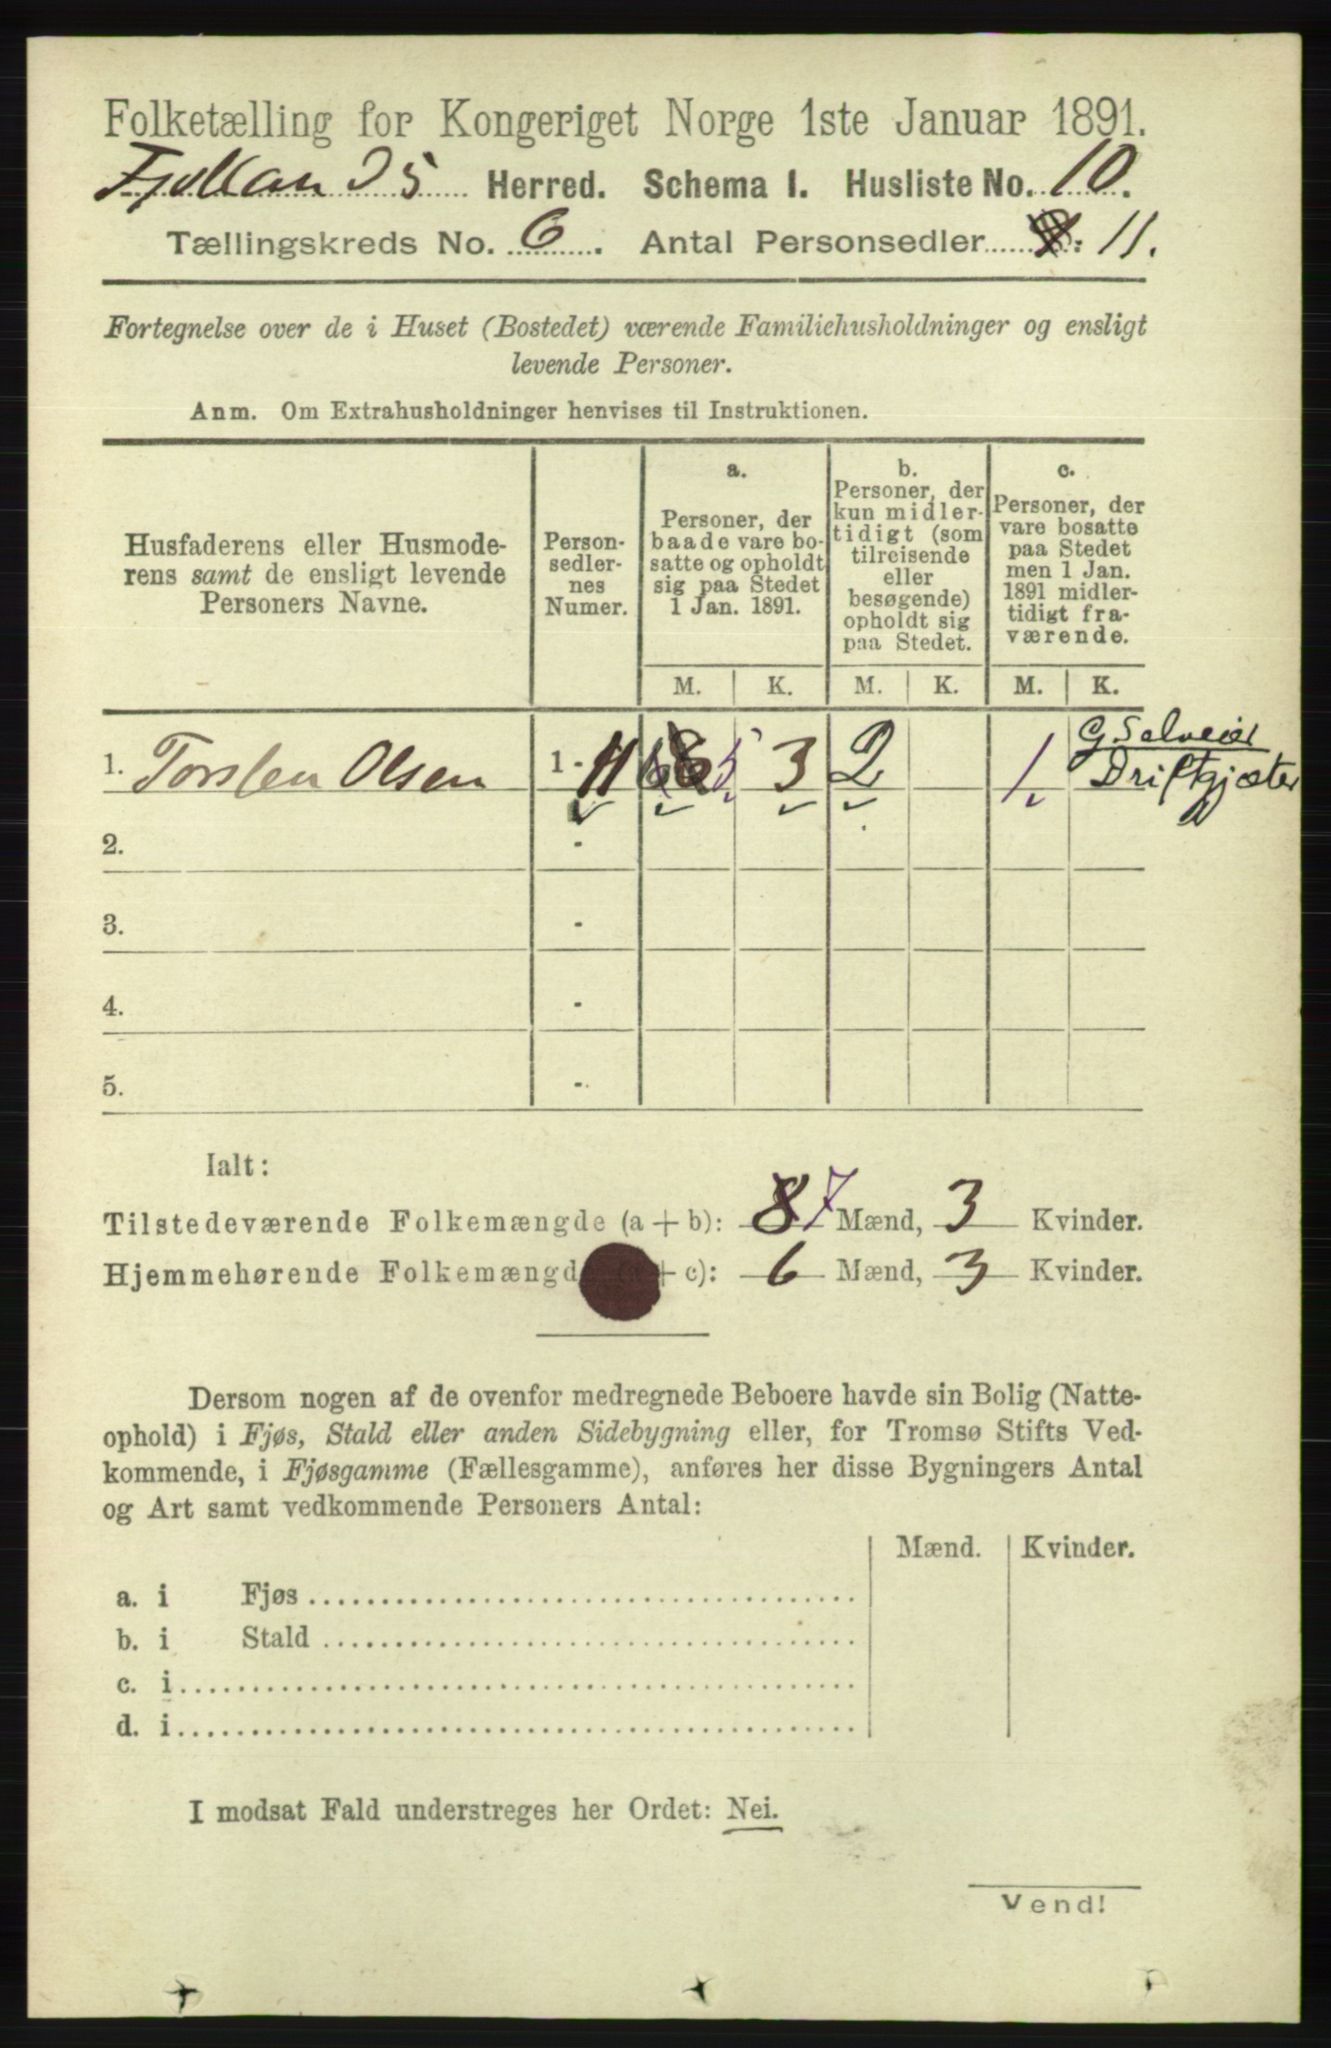 Folketælling for Kongeriget Norge 1ste Januar 1891.
Fjotlands Herred. Schema I. Husliste No. 10.
Tællingskreds No. 6. Antal Personsedler 11.
Fortegnelse over de i Huset (Bostedet) værende Familiehusholdninger og ensligt
levende Personer.
Anm. Om Extrahusholdninger henvises til Instruktionen.
Husfaderens eller Husmode-
rens samt de ensligt levende
Personers Navne.
Person-
sedler-
nes
Numer.
a.
Personer, der
baade vare bo-
satte og opholdt
sig paa Stedet
1 Jan. 1891.
b.
Personer, der
kun midler-
tidigt (som
tilreisende
eller
besøgende)
opholdt sig
paa Stedet.
c.
Personer, der
vare bosatte
paa Stedet
men 1 Jan.
1891 midler-
tidigt fra-
værende.
M. K. M. K. M. K.
G. Selveier
1. Torsten Olsen 1 - 11 5 3 2 1 Driftgjæter
2. -
3. -
4. -
5. -
Ialt:
Tilstedeværende Folkemængde (a + b): 8 7 Mænd, 3 Kvinder.
Hjemmehørende Folkemængde (a + c): 6 Mænd, 3 Kvinder.
Dersom nogen af de ovenfor medregnede Beboere havde sin Bolig (Natte-
ophold) i Fjøs, Stald eller anden Sidebygning eller, for Tromsø Stifts Ved-
kommende, i Fjøsgamme (Fællesgamme), anføres her disse Bygningers Antal
og Art samt vedkommende Personers Antal:
Mænd. Kvinder.
a. i Fjøs
b. i Stald
c. i
d. i
I modsat Fald understreges her Ordet: Nei.
Vend!